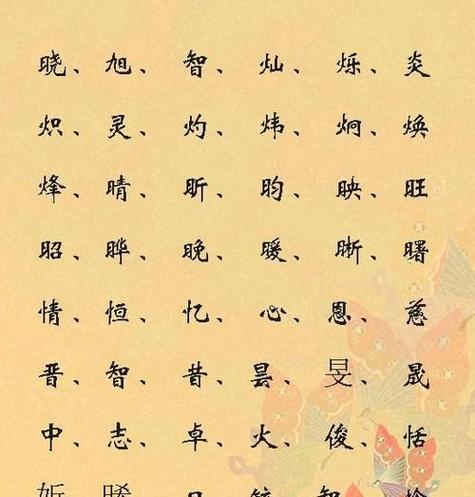 晓、旭、智、灿、烁、炎
炽、灵、灼、炜、炯、焕
烽、晴、昕、昀、映、旺
昭、晔、晚、暖、晰、曙
情、恒、忆、心、恩、慈
晋、智、昔、昙、旻、晟
中、志、卓、火、俊、恬